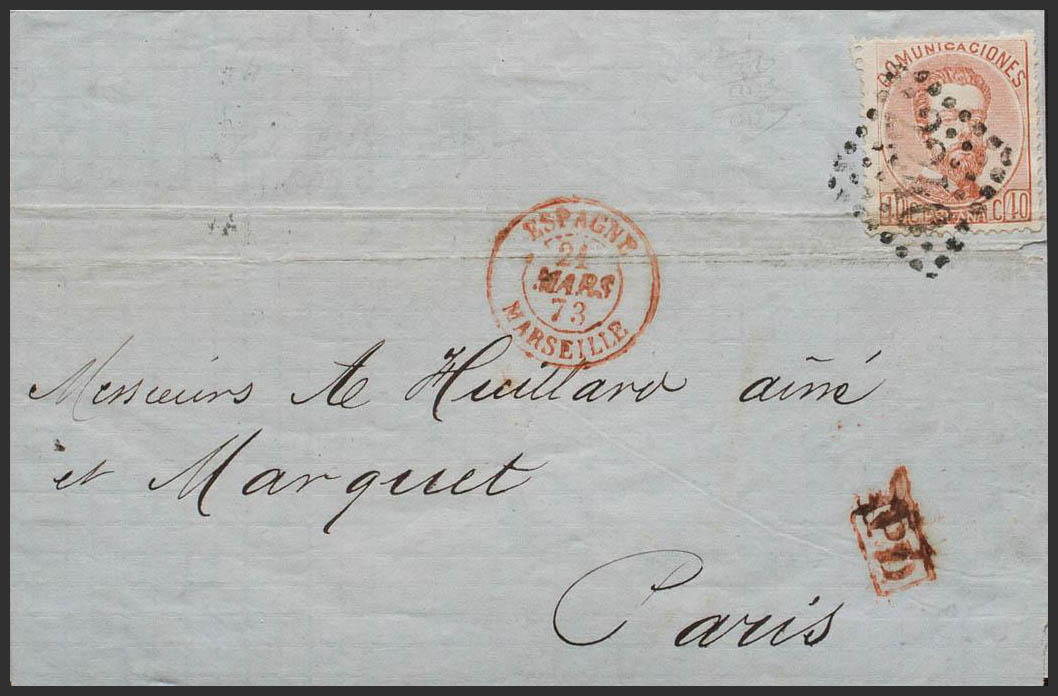 COMUNICACIONES
C 40
ESPAGNE
21
MARS
73
MARSEILLE
Messieurs Ae Huillard aîné
et Marquet
PD
Paris